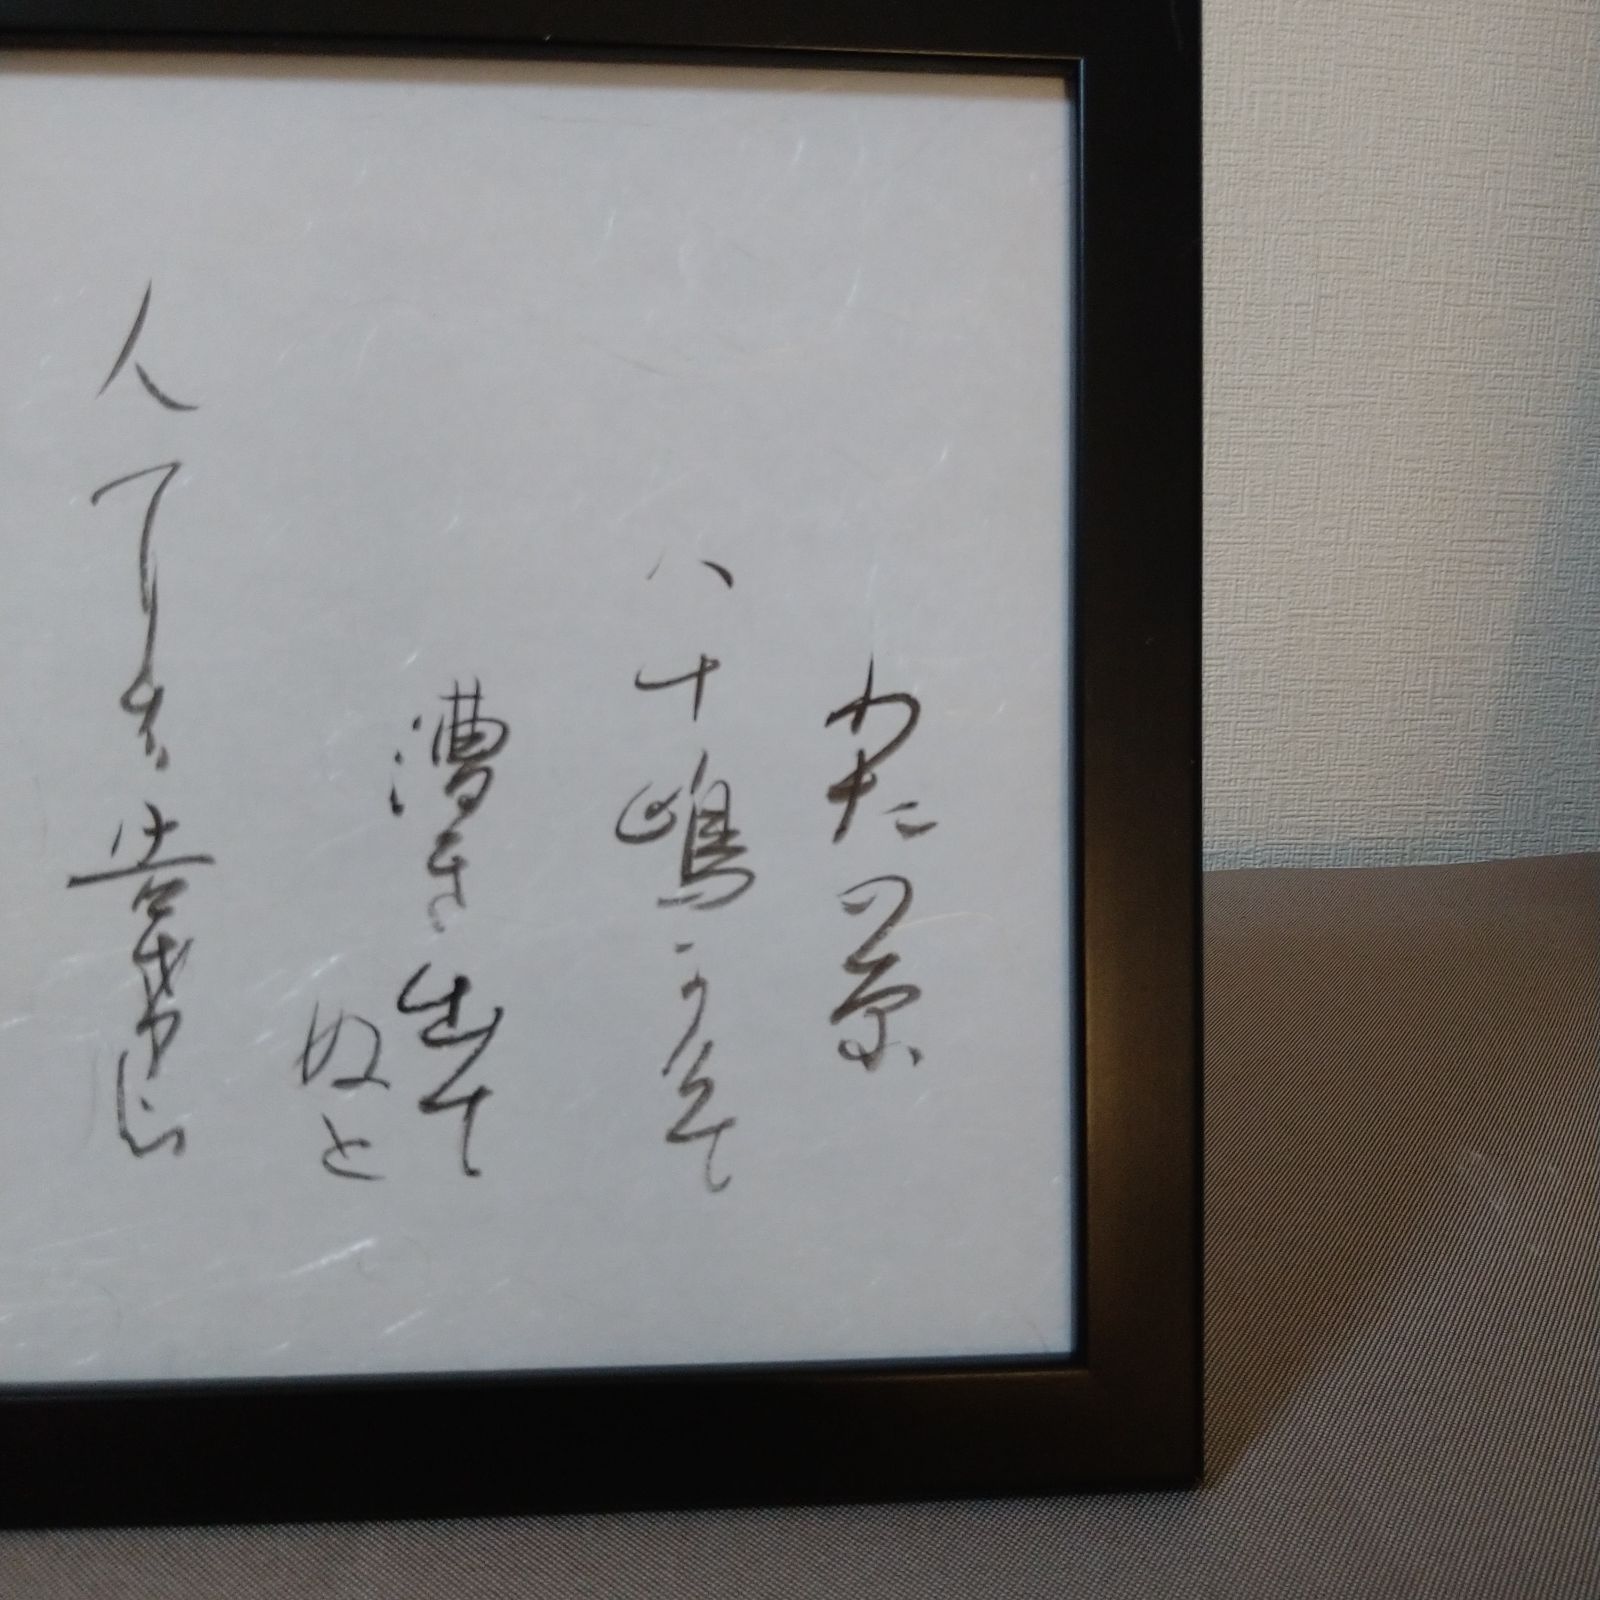 わたの原
八十嶋かけて
漕き出て
ぬと
人には告よ